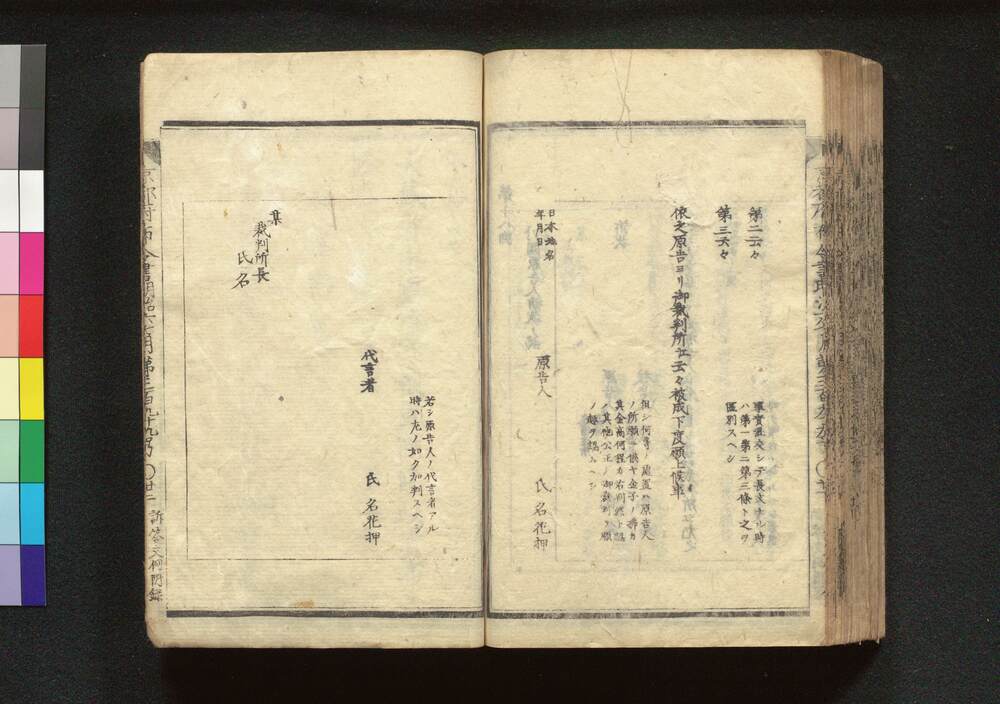 第二云々
第三云々
事實混交シテ長文ナル時
ハ第一第二第三條ト之ヲ
區別スヘシ
依之原告ヨリ御裁判所江云々被成下度願上候事
但シ何等ノ處置ハ原告人
ノ所願ニ供ヤ金子ノ
其金高何程カ右判然ト認
ノ其他公正ノ御裁判ヲ願
ノ趣ヲ認ムヘシ
日本地名
年月日
原告人
氏名花押
若シ原告人ノ代言者アル
時ハ左ノ如ク加判スヘシ
代言者
氏名花押
某
裁判所長
氏名
京都府布令書明治六年第三百九十九号
〇廿二
訴答文例附録